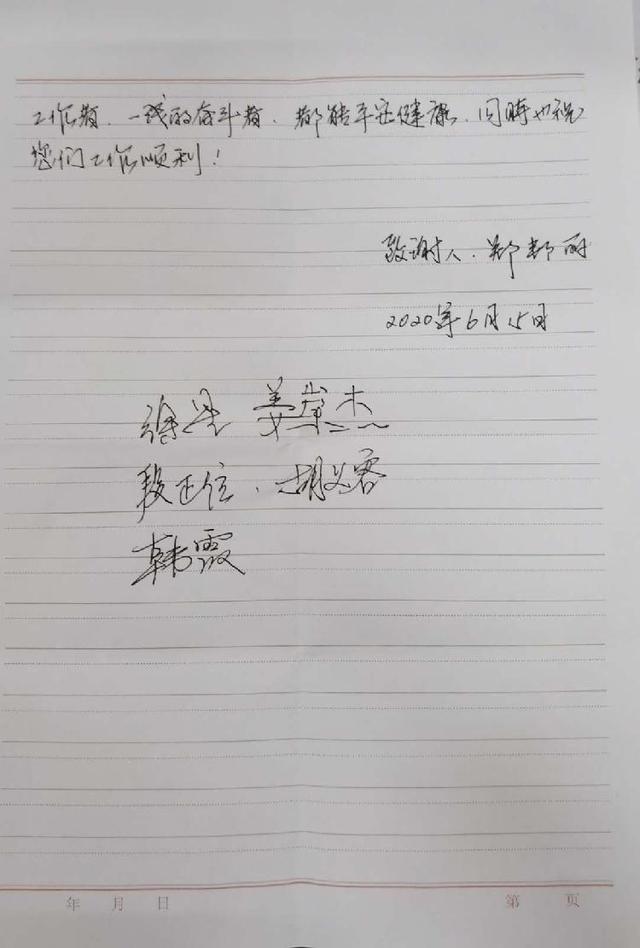 工作者、一线的奋斗者、都能平安健康、同時也祝
您们工作顺利！
致谢人：郑
2020年6月15日
姜 杰
段正位、胡义容
韩霞
年 月 日 第 页